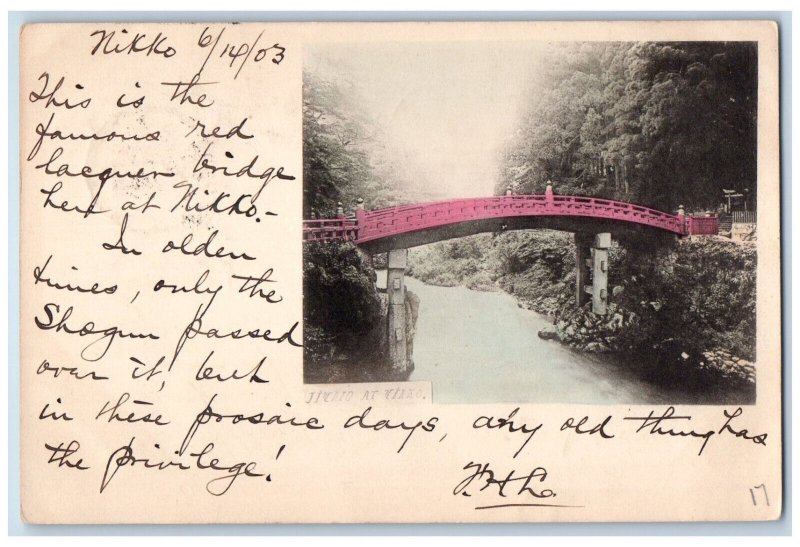 Nikko 6/14/03
This is the
famous red
lacquer bridge
here at Nikko.-
In olden
times, only the
Shogun passed
over it, but
in these prosaic days, any old thing has
the privilege!
AT NIKKO.
17